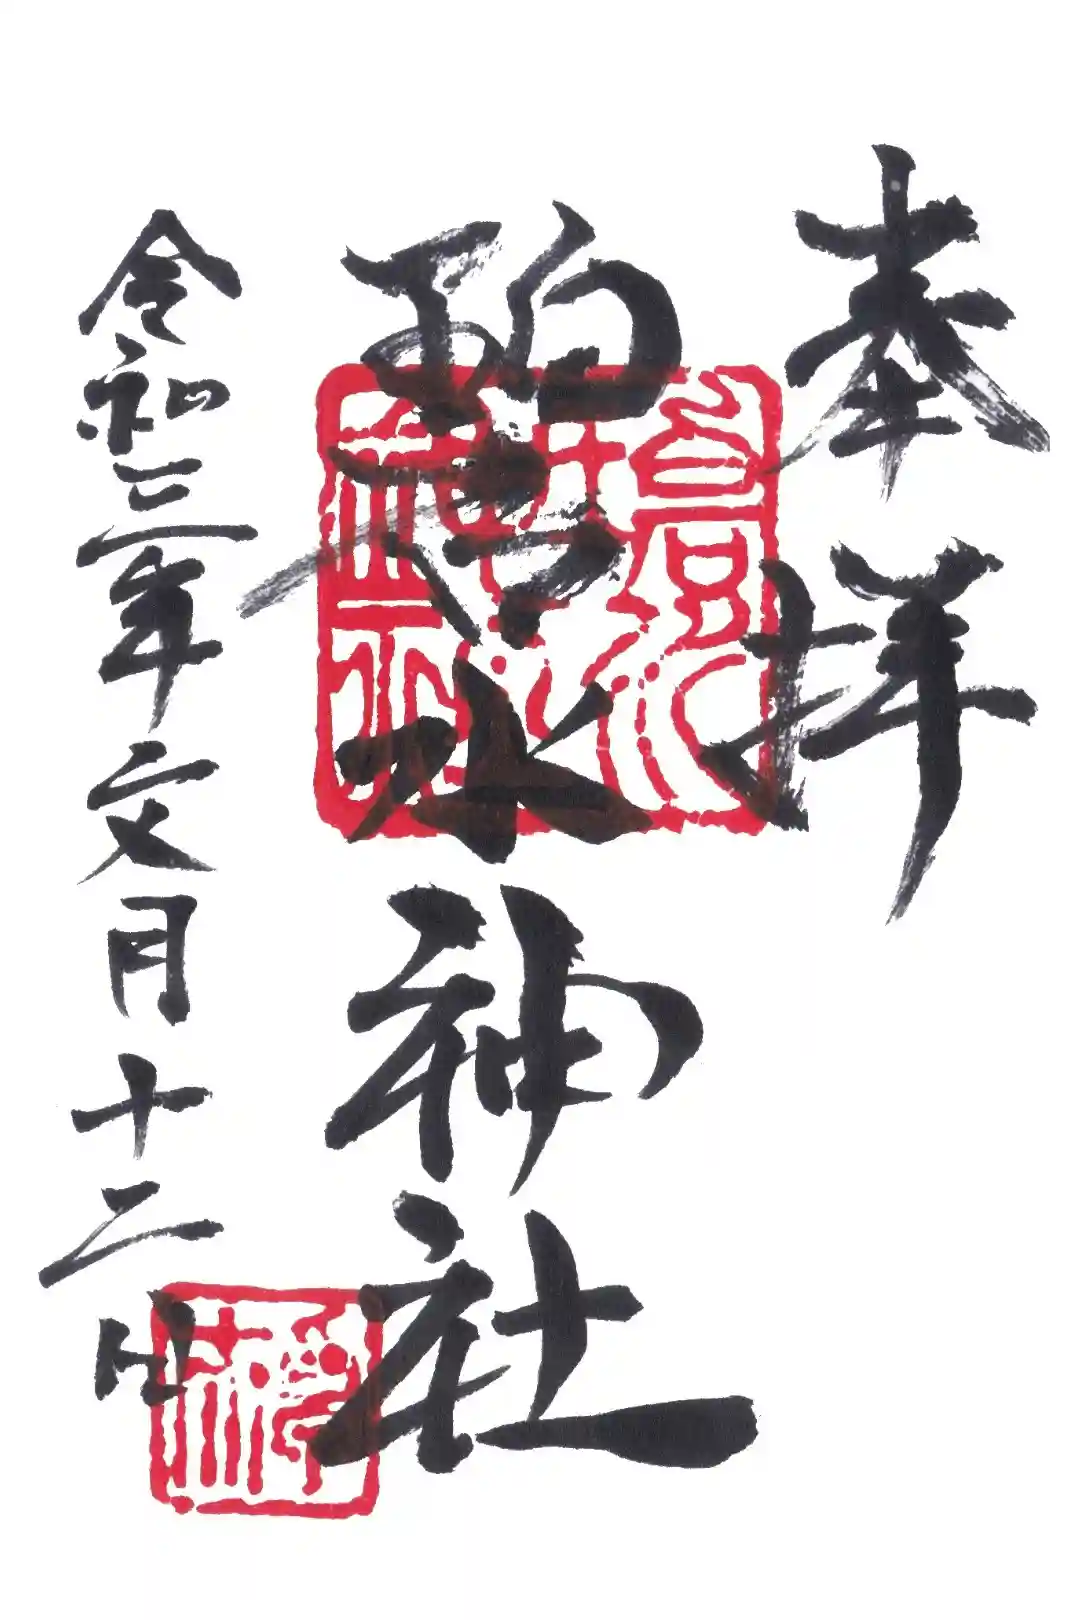 奉拝
碧水神社
令和三年文月十二日